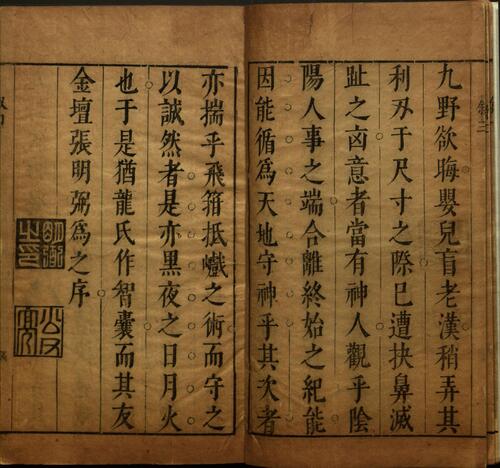 九野欲晦嬰兒盲老漢稍弄其
利刃于尺寸之際巳遭抉鼻滅
趾之凶意者當有神人觀乎陰
陽人事之端合離終始之紀能
因能循爲天地守神乎其次者
亦揣乎飛箝抵巇之術而守之
以誠然者是亦黑夜之日月火
也于是猶龍氏作智囊而其友
金壇張明弼爲之序